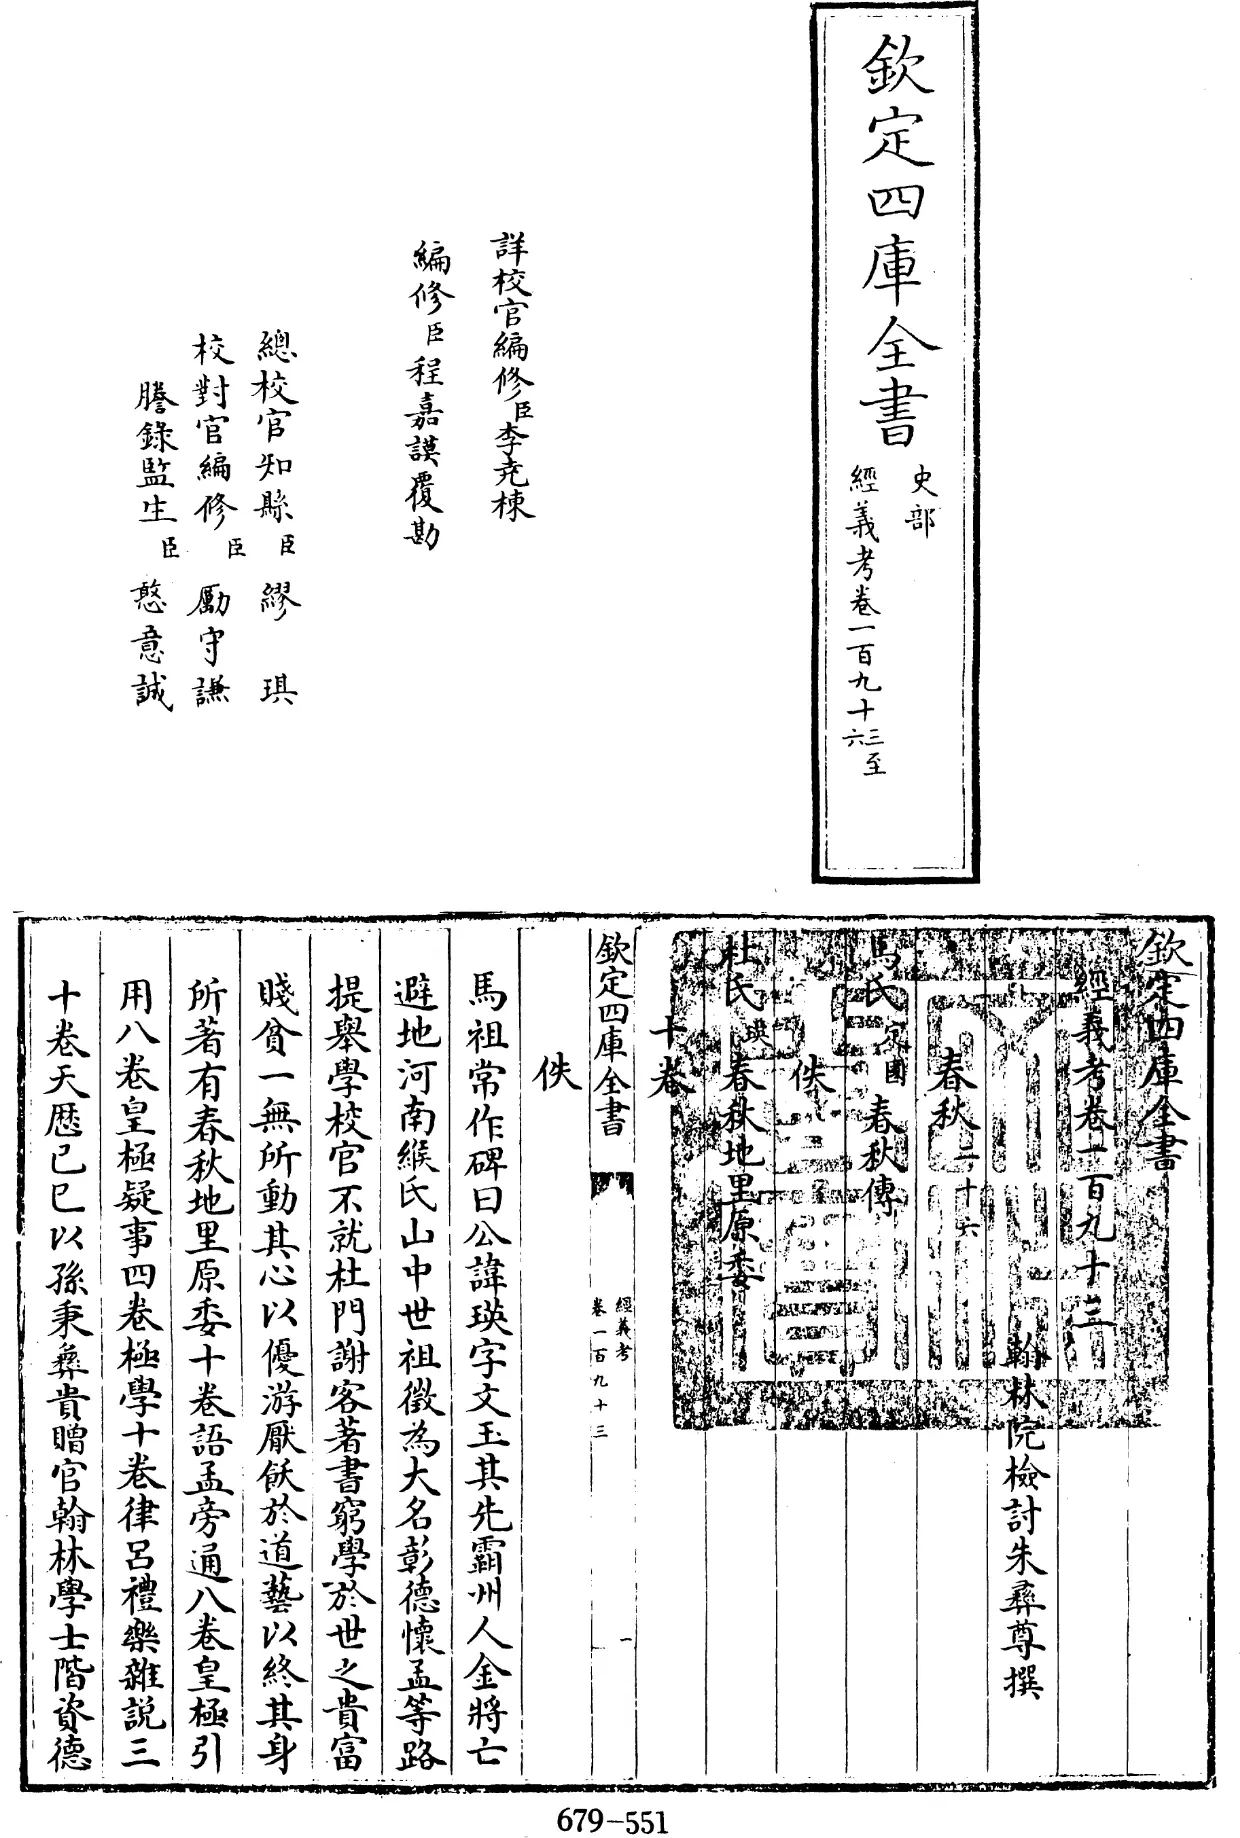 欽定四庫全書
史部
經義考卷一百九十三至
六
詳校官編修臣李堯棟
編修臣程嘉謨覆勘
總校官知縣臣繆琪
校對官編修臣勵守謙
謄錄監生臣憨意誠
欽定四庫全書
經義考卷一百九十三
翰林院檢討朱彝尊撰
春秋二十六
馬氏定國春秋傳
佚
杜氏瑛春秋地里原委
十卷
欽定四庫全書
經義考
卷一百九十三
一
佚
馬祖常作碑曰公諱瑛字文玉其先霸州人金將亡
避地河南緱氏山中世祖徵為大名彰德懷孟等路
提舉學校官不就杜門謝客著書窮學於世之貴富
賤貧一無所動其心以優游厭飫於道藝以終其身
所著有春秋地里原委十卷語孟旁通八卷皇極引
用八卷皇極疑事四卷極學十卷律呂禮樂雜說三
十卷天歷己巳以孫秉彝貴贈官翰林學士階資德
679-551